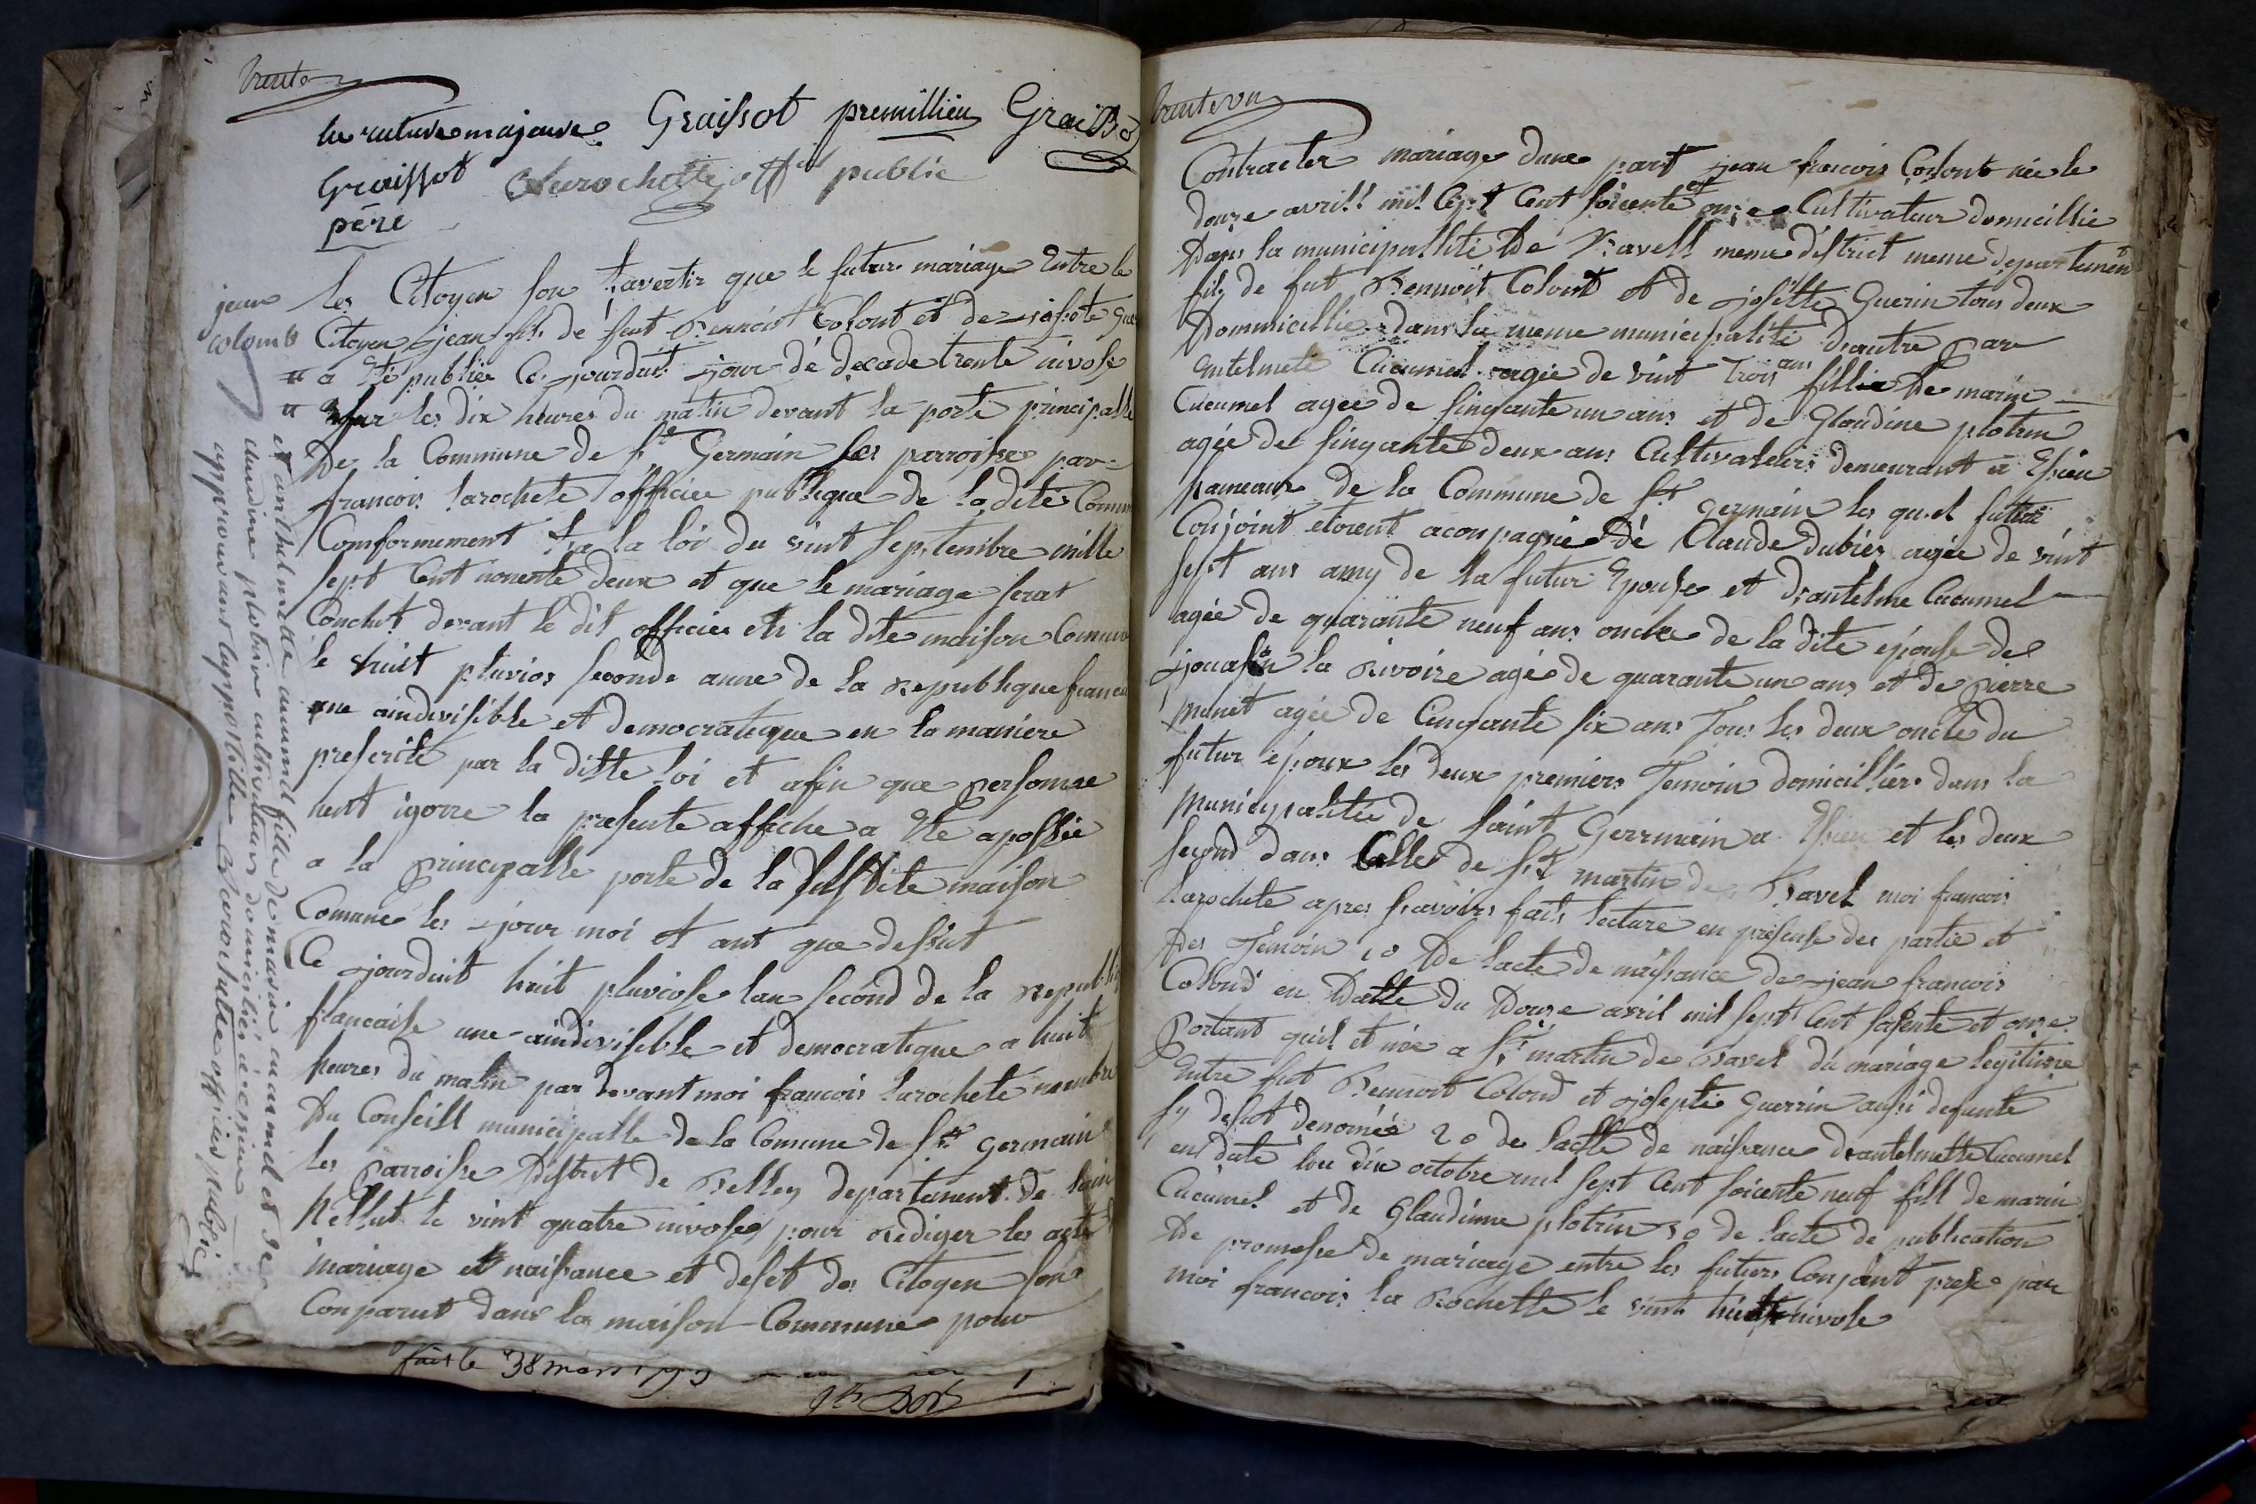 trente
la rature majoure Graissot premillieu Graisso
Graissot Larochette off. public
père
les Citoyen son tavertir que le futur mariage Entre le
Citoyen jean fils de feut Bennoist Colont et de josete
a Eté publiée Ce jourduit jour dé decade trente nivose
Sur les dix heures du matin devant la porte principalle
De la Commune de St Germain les parroisse par
francois larochete officier publique de la dite Comm
Comformement a la loi du vint septembre mille
sept Cent nonente deux et que le mariage serat
Conclut devant le dit officier en la dite maison Commune
le huit pluvios seconde anne de la republique france
une aindivisible et democratique en la maniere
prescrite par la ditte loi et afin que personne
nent igorre la presente affiche a Ete apossée
a la principalle porte de la susdite maison
Comune les jour moi et ant que dessut
Ce jourduit huit pluviose lan second de la republi
francaise une aindivisible et democratique a huit
heures du matin par devant moi francois larochete membre
Du Conseill municipalle de la Comune de St germain
les parroisse district de Belley departement de lain
hellut le vint quatre nivose pour rediger les acte
mariage et naissance et deset des Citoyen son
Conparut dans la maison Commune pour
fait le 38 mars 1793
jean
colomb
et anthelmette cucumel fille de marin cucumel et de
claudine plotrin cultivateurs domiciliés a essieu
approuvant lappostille Larochette officier public
trente un
Contracter mariage dune part jean francois Colont née le
douze avrill mil Cept Cent soicente et onze Cultivateur domicillie
Dans la municipallité De Bavell meme district meme departement
fils de fut Bennoit Colont et de josette Guerin tous deux
Dommicillie dans la meme municipalité Dautre par
antelmete Cucumel agée de vint trois ans fillie De marin
Cucumel agee de sinqante un ans et de Glaudine plotrin
agée de sinqante deux ans Cultivateurs demeurant a Esieu
hameaux de la Commune de St Germain les quel futur
Conjoint etoient aconpagnié Dé Claude dubies agée de vint
sept ans amy de la futur Epouse et Dantelme Cucumel
agée de quarante neuf ans oncle de la dite epouse de
la Rivoire agé de quarante un ans et de pierre
munet agée de Cinqante six ans Tous les deux oncle du
futur époux les deux premiers Temoin domicilliers dans la
municypalitée de saint Gerrmain a Esieu et les deux
segond dans Celle de St martin de Bavel moi francois
Larochete apres havoirs fait lecture en presense des partie et
Des Temoin 1o De lacte de naissance de jean francois
Colond en Datte Du Douze avril mil sept Cent sasente et onze
Portant quil et née a St martin de Bavel du mariage legitime
Entre fut Bennoit Colond et josepte Guerrin ausi defunte
sy desut denomée 2o de lacte de naissance dantelmette Cucumel
en date lou dix octobre mil sept Cent soicente neuf fill de marin
Cucumel et de Glaudinne plotrin 3o de lacte de publication
De promesse de mariage entre les futurs Conjoint prese par
moi francois la Rochette le vint nivose